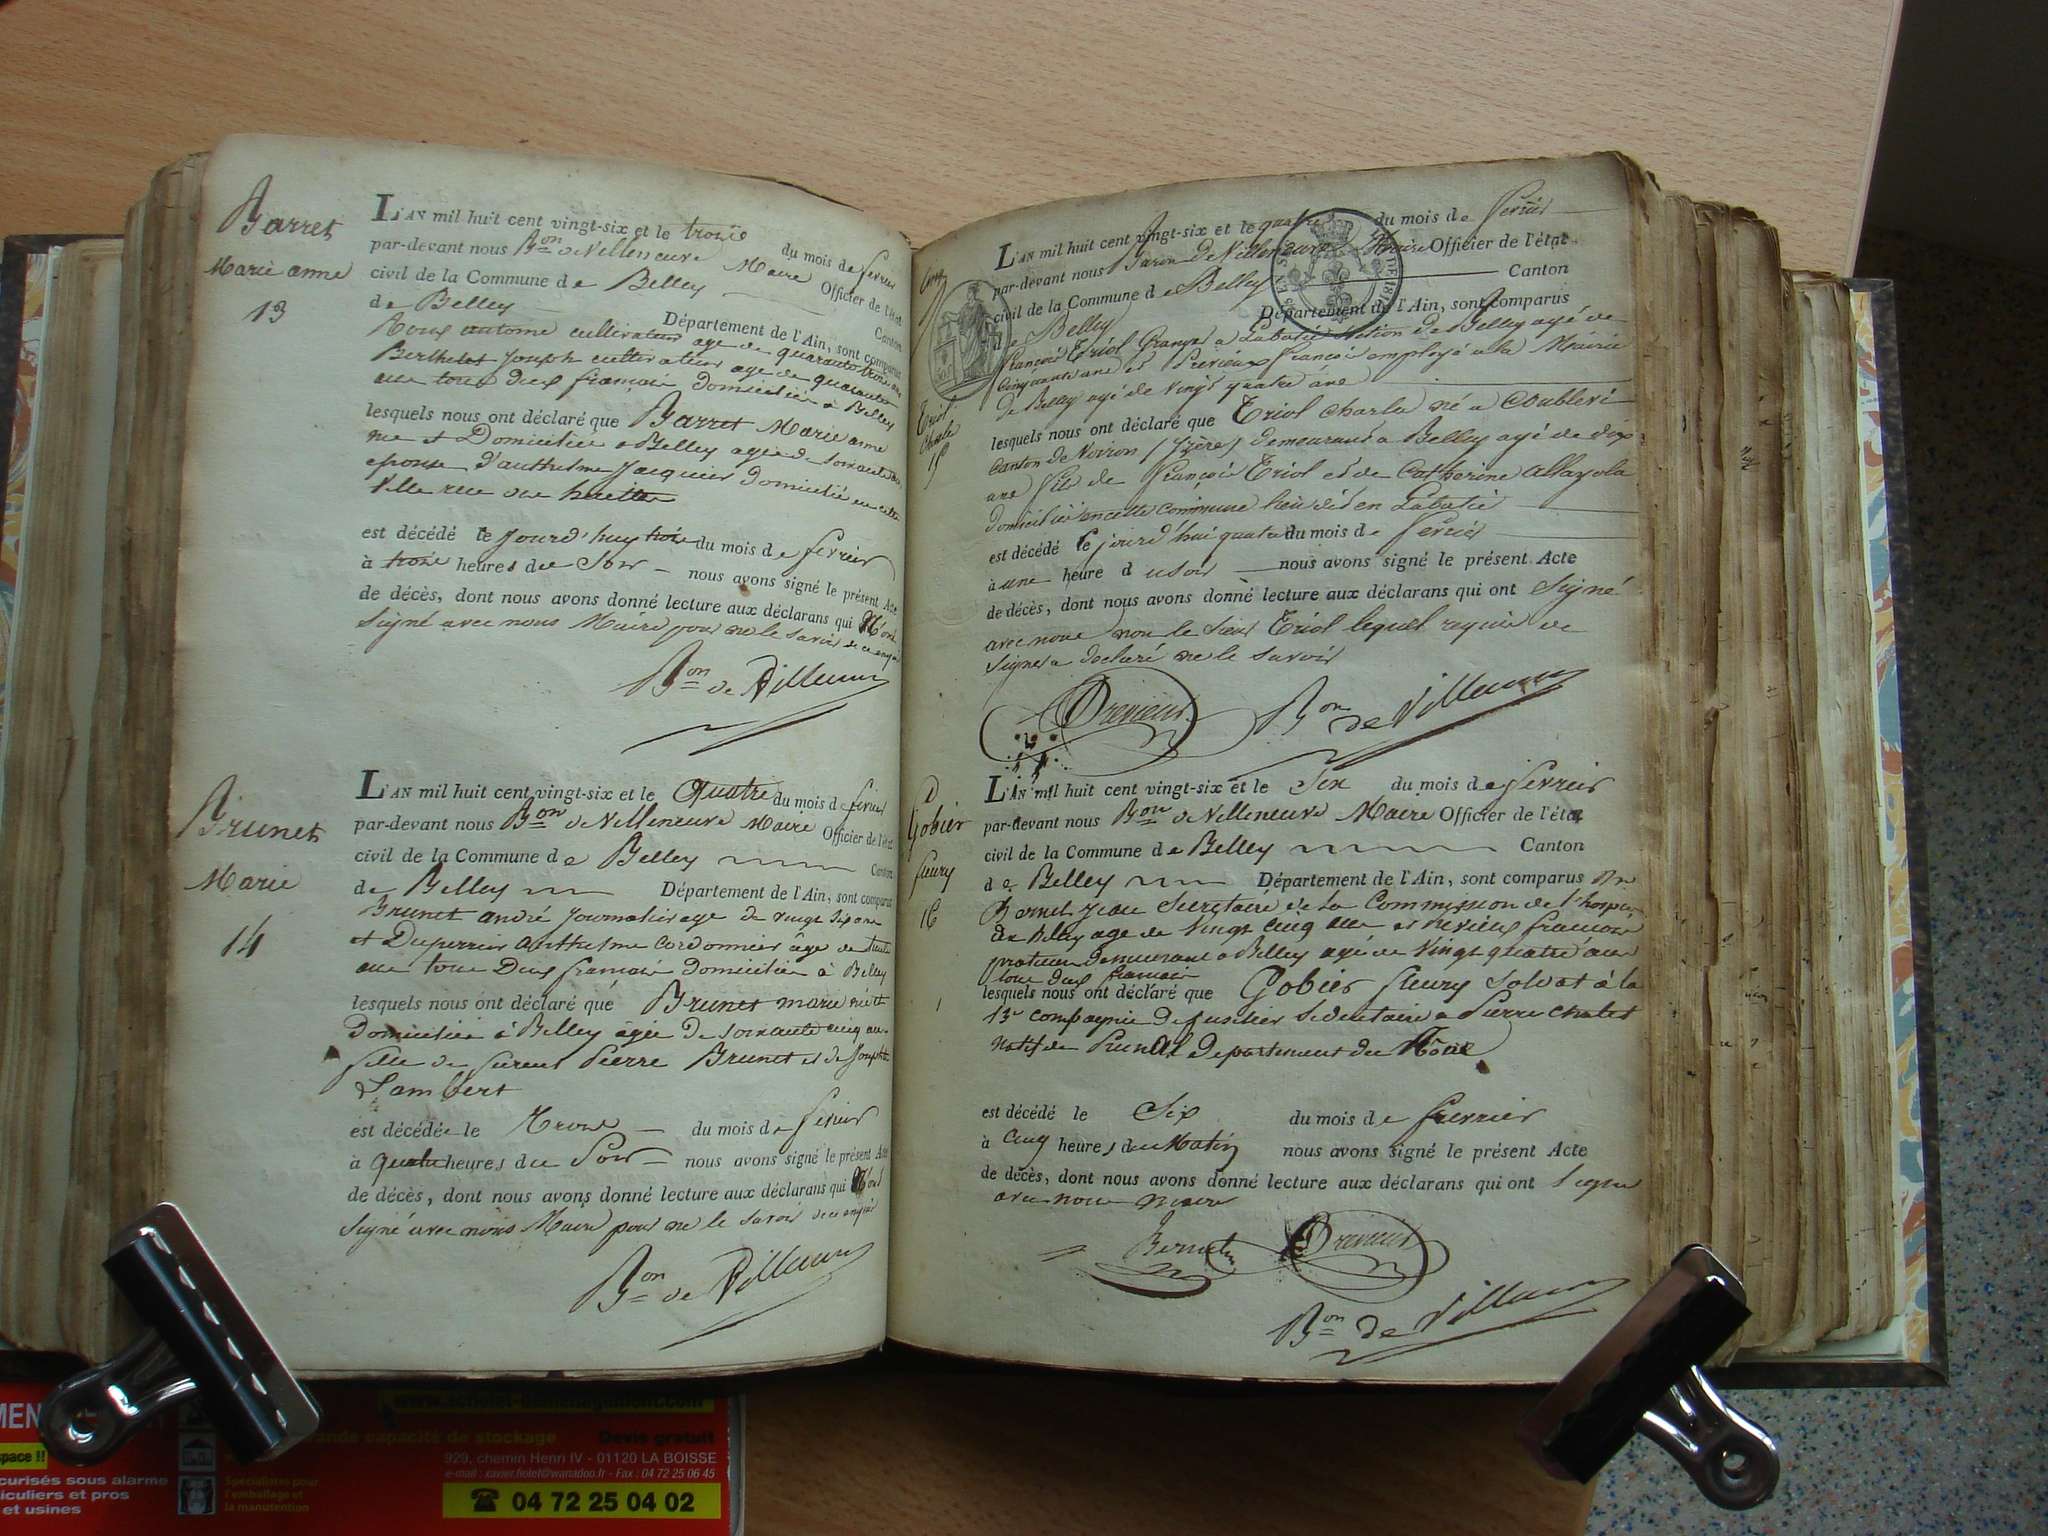 Barret
Marie anne
13
L'AN mil huit cent vingt-six et le trois du mois de fevrier
par-devant nous Bon de Villeneuve Maire Officier de l'état
civil de la Commune de Belley Canton
de Belley Département de l'Ain, sont comparus
Roux antoine cultivateur age de quarante trois ans
Berthelot Joseph cultivateur age de quarante
ans tous deux français domiciliés à Belley
lesquels nous ont déclaré que Barret Marie anne
née et Domiciliée à Belley agée de soixante
epouse d'anthelme Jacquier domicilié en cette
Ville rue
est décédé le Jourd'huy trois du mois de fevrier
à trois heures du Soir nous avons signé le présent Acte
de décès, dont nous avons donné lecture aux déclarans qui N'ont
signé avec nous Maire pour ne le savoir de ce enquis
Bon de Villeneuve
Brunet
Marie
14
L'AN mil huit cent vingt-six et le Quatre du mois de fevrier
par-devant nous Bon de Villeneuve Maire Officier de l'état
civil de la Commune de Belley Canton
de Belley Département de l'Ain, sont comparus
Brunet andré Journalier age de vingt six ans
et Duperrier anthelme cordonnier âge de trente
ans tous Deux français domiciliés à Belley
lesquels nous ont déclaré que Brunet marie née et
Domiciliée à Belley âgée De soixante cinq ans
fille de feu Pierre Brunet et de Josephte
Lambert
est décédée le Trois du mois de fevrier
à Quatre heures du Soir nous avons signé le présent Acte
de décès, dont nous avons donné lecture aux déclarans qui N'ont
signé avec nous Maire pour ne le savoir de ce enquis
Bon de Villeneuve
L'AN mil huit cent vingt-six et le quatre du mois de fevrier
par-devant nous Baron de Villeneuve Maire Officier de l'état
civil de la Commune de Belley Canton
de Belley Département de l'Ain, sont comparus
François Eriol Granger a Labatie section de Belley agé de
cinquante ans et Previeux François employé a la Mairie
de Belley agé de vingt quatre ans
Eriol
Charle
15
lesquels nous ont déclaré que Eriol Charle né a Coublevi
Canton de Voiron (Izère) demeurant a Belley agé de dix
ans fils de François Eriol et de Catherine
domicilié en cette commune lieu dit en Labatie
est décédé le jourd'hui quatre du mois de fevrier
à une heure du soir nous avons signé le présent Acte
de décès, dont nous avons donné lecture aux déclarans qui ont signé
avec nous non le sieur Eriol lequel requis de
signer a declaré ne le savoir
Previeux Bon de Villeneuve
Gobier
fleury
16
L'AN mil huit cent vingt-six et le Six du mois de fevrier
par-devant nous Bon de Villeneuve Maire Officier de l'état
civil de la Commune de Belley Canton
de Belley Département de l'Ain, sont comparus
Bernet Jean Secretaire de la Commission de l'hospice
de Belley age de vingt cinq ans et Previeux francois
praticien demeurant a Belley agé de vingt quatre ans
tous deux francais
lesquels nous ont déclaré que Gobier fleury soldat à la
13e compagnie De fusilier Sedentaire a Pierre Chatel
natif de Departement du Rône
est décédé le Six du mois de fevrier
à cinq heures du Matin nous avons signé le présent Acte
de décès, dont nous avons donné lecture aux déclarans qui ont signé
avec nous maire
Bernet Previeux
Bon de Villeneuve
grande capacité de stockage Devis gratuit
929, chemin Henri IV - 01120 LA BOISSE
e-mail : xavier.fiolet@wanadoo.fr - Fax : 04 72 25 06 45
04 72 25 04 02
space !!
curisés sous alarme
iculiers et pros
et usines
Spécialistes pour
l'emballage et
la manutention